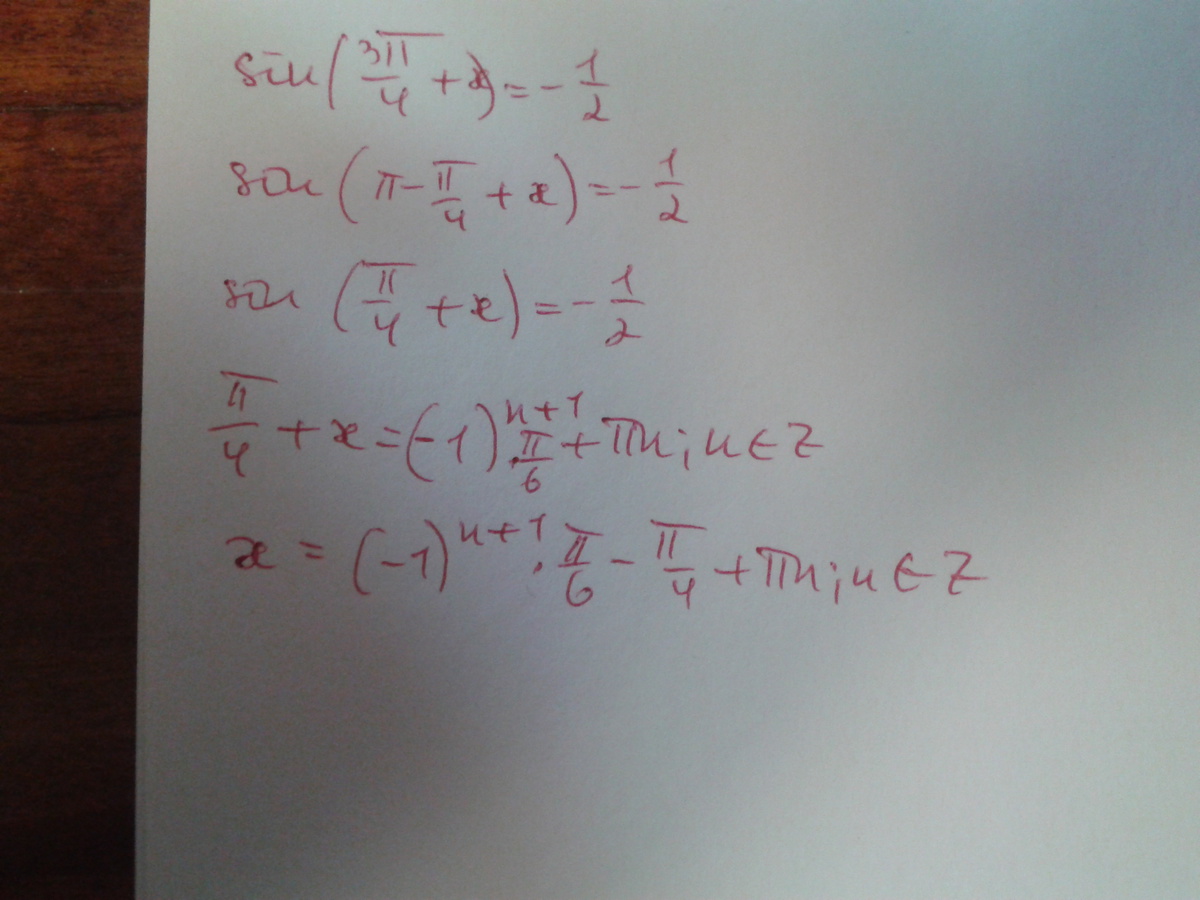 sin(3π/4 + x) = -1/2
sin(π - π/4 + x) = -1/2
sin(π/4 + x) = -1/2
π/4 + x = (-1)^(n+1) · π/6 + πn; n ∈ Z
x = (-1)^(n+1) · π/6 - π/4 + πn; n ∈ Z